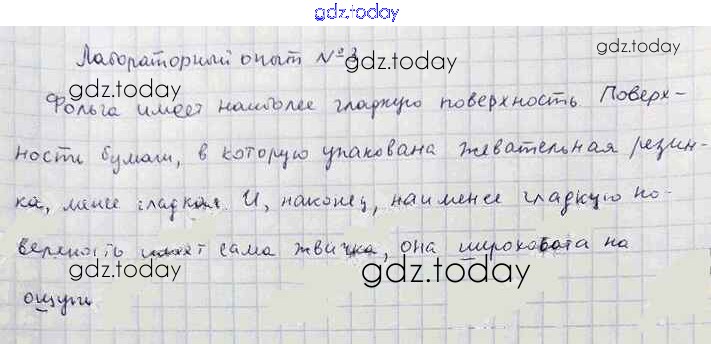 gdz.today
Лабораторный опыт №3
gdz.today
gdz.today
Фольга имеет наиболее гладкую поверхность Поверх-
ности бумаги, в которую упакована жевательная резин-
ка, менее гладкая. И, наконец, наименее гладкую по-
gdz.today
gdz.today
верхность имеет сама жвачка, она шероховата на
gdz.today
gdz.today
ощупь